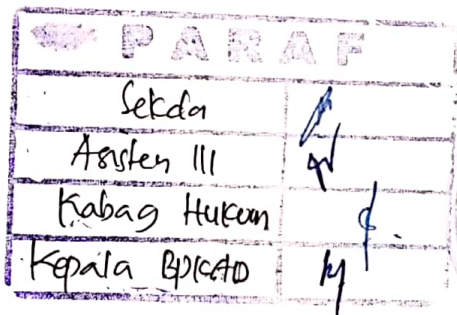 PARAF
Sekda
Asisten III
Kabag Hukum
Kepala BPKAD